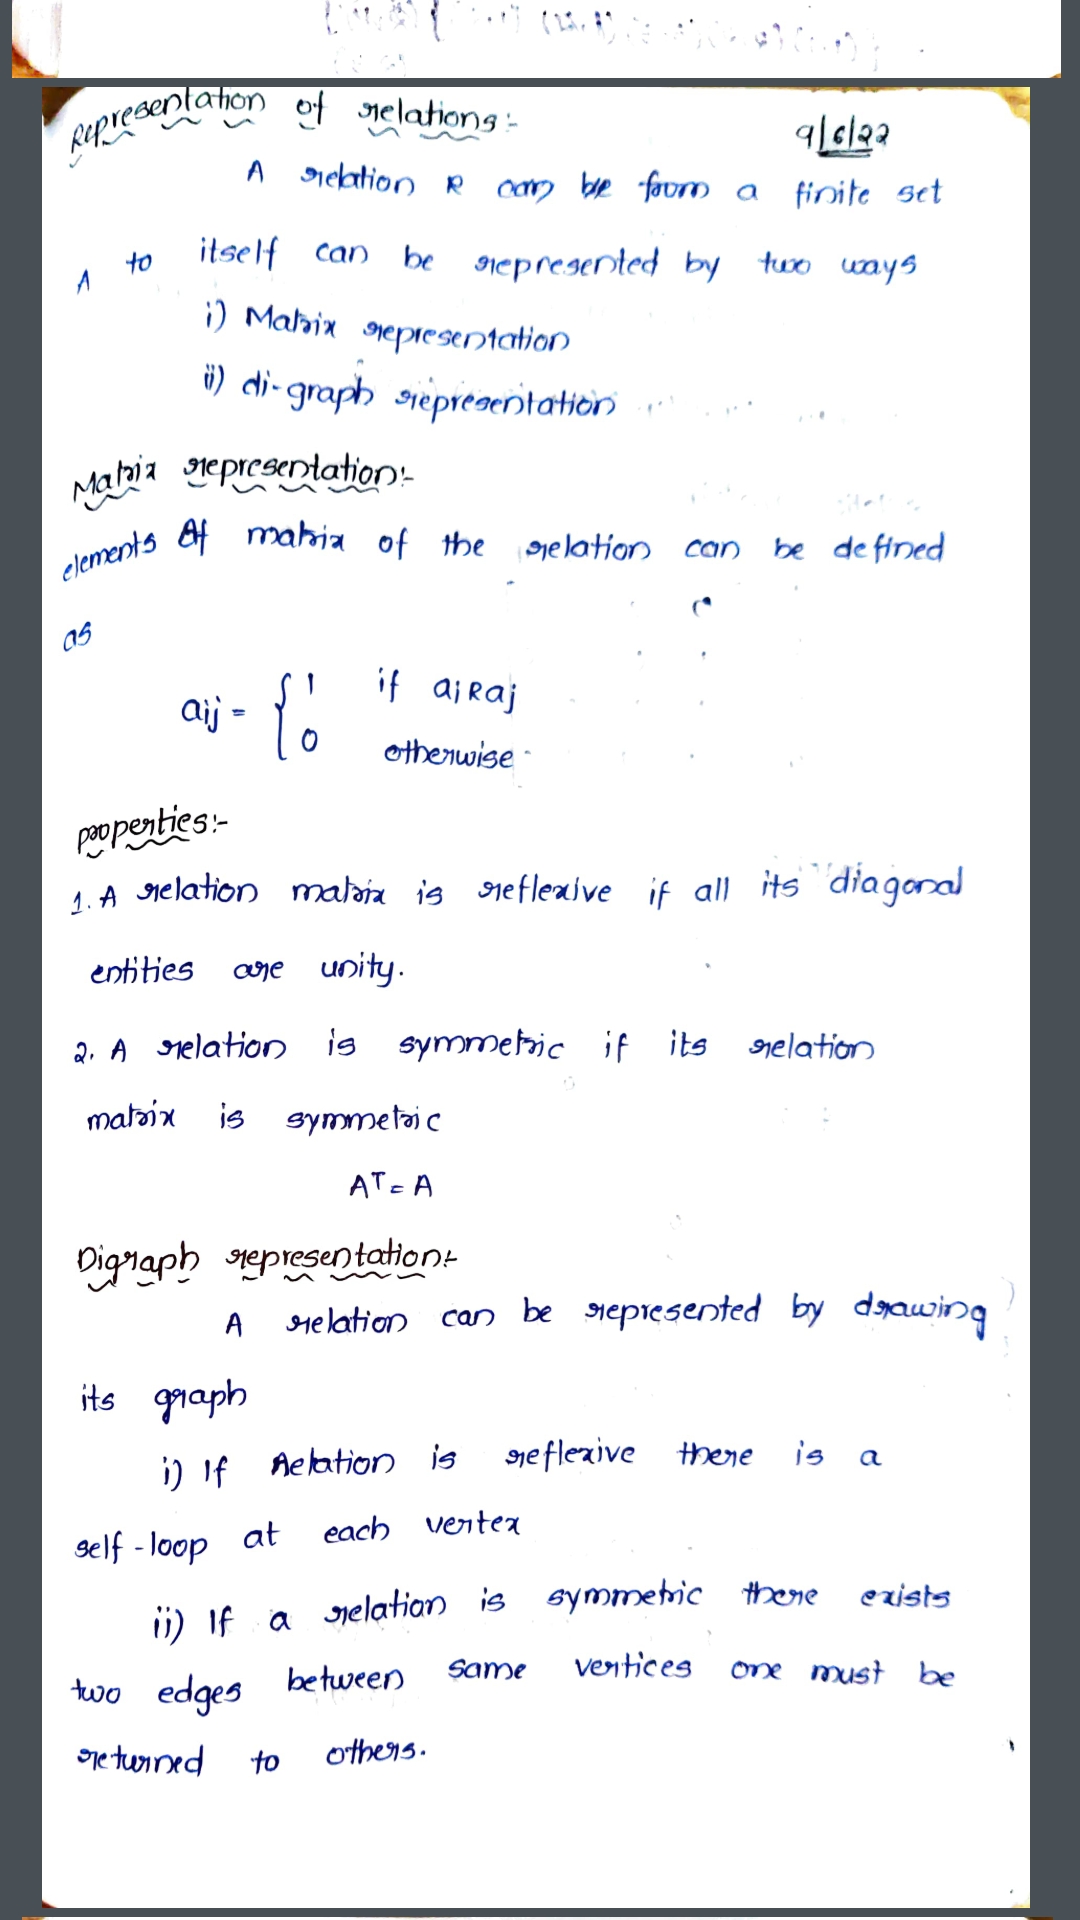 Representation of relations:-
9/6/22
A relation R can be from a finite set
A to itself can be represented by two ways
i) Matrix representation
ii) di-graph representation
Matrix representation:-
elements of matrix of the relation can be defined
as
aij = { 1 if aiRaj
0 otherwise
properties:-
1. A relation matrix is reflexive if all its diagonal
entities are unity.
2. A relation is symmetric if its relation
matrix is symmetric
A^T = A
Digraph representation:-
A relation can be represented by drawing
its graph
i) If Relation is reflexive there is a
self-loop at each vertex
ii) If a relation is symmetric there exists
two edges between same vertices one must be
returned to others.